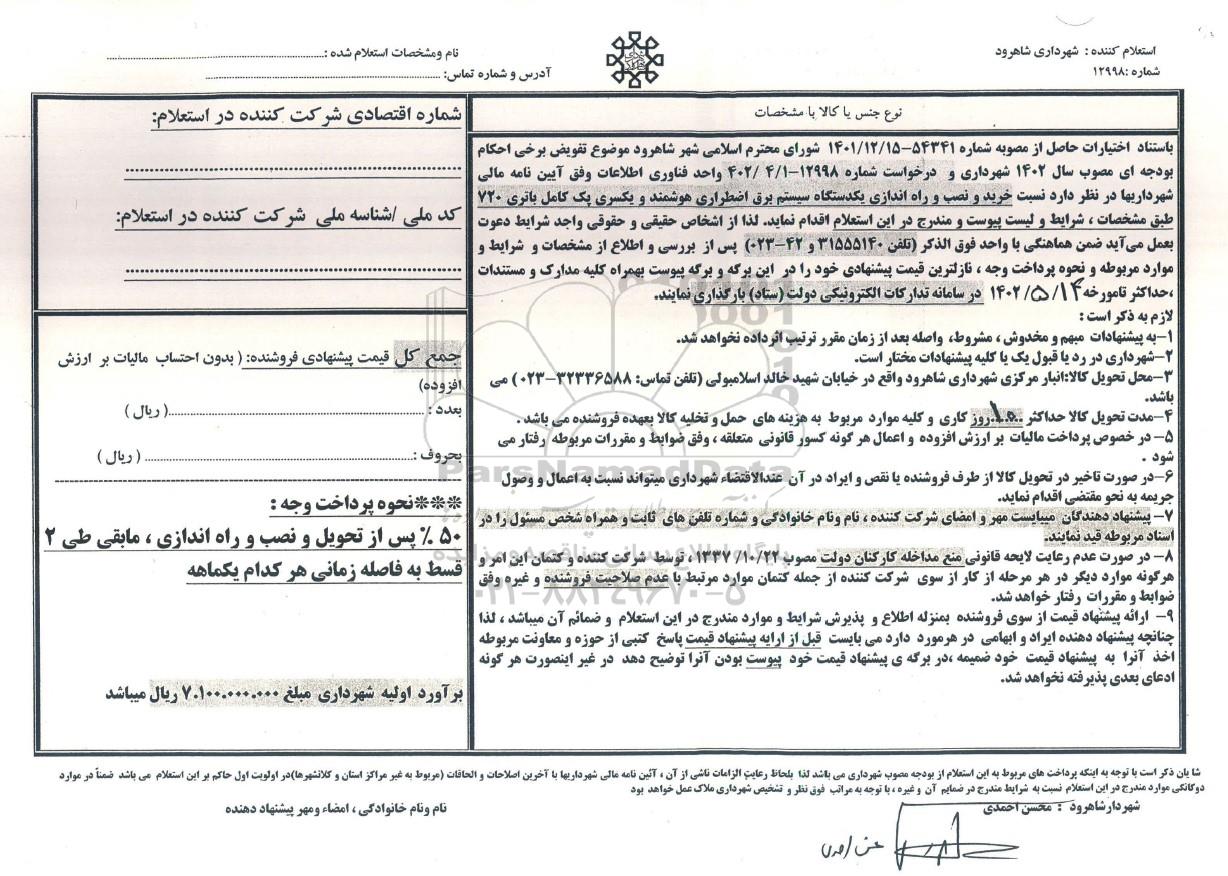 استعلام کننده : شهرداری شاهرود
شماره :۱۲۹۹۸
نام ومشخصات استعلام شده :
آدرس و شماره تماس:
نوع جنس یا کالا با مشخصات
باستناد اختیارات حاصل از مصوبه شماره ۵۴۳۴۱-۱۴۰۱/۱۲/۱۵ شورای محترم اسلامی شهر شاهرود موضوع تفویض برخی احکام
بودجه ای مصوب سال ۱۴۰۲ شهرداری و درخواست شماره ۱۲۹۹۸-۴/۱ /۴۰۲ واحد فناوری اطلاعات وفق آیین نامه مالی
شهرداریها در نظر دارد نسبت خرید و نصب و راه اندازی یکدستگاه سیستم برق اضطراری هوشمند و یکسری پک کامل باتری ۷۲۰
طبق مشخصات ، شرایط و لیست پیوست و مندرج در این استعلام اقدام نماید. لذا از اشخاص حقیقی و حقوقی واجد شرایط دعوت
بعمل می‌آید ضمن هماهنگی با واحد فوق الذکر (تلفن ۳۱۵۵۵۱۴۰ و ۴۲-۰۲۳) پس از بررسی و اطلاع از مشخصات و شرایط و
موارد مربوطه و نحوه پرداخت وجه ، نازلترین قیمت پیشنهادی خود را در این برگه و برگه پیوست بهمراه کلیه مدارک و مستندات
،حداکثر تامورخه ۱۴۰۲/۵/۱۴ در سامانه تدارکات الکترونیکی دولت (ستاد) بارگذاری نمایند.
لازم به ذکر است :
۱-به پیشنهادات مبهم و مخدوش ، مشروط، واصله بعد از زمان مقرر ترتیب اثرداده نخواهد شد.
۲-شهرداری در رد یا قبول یک یا کلیه پیشنهادات مختار است.
۳-محل تحویل کالا:انبار مرکزی شهرداری شاهرود واقع در خیابان شهید خالد اسلامبولی (تلفن تماس: ۳۲۳۳۶۵۸۸-۰۲۳ ) می
باشد.
۴-مدت تحویل کالا حداکثر ۱۰ روز کاری و کلیه موارد مربوط به هزینه های حمل و تخلیه کالا بعهده فروشنده می باشد .
۵- در خصوص پرداخت مالیات بر ارزش افزوده و اعمال هر گونه کسور قانونی متعلقه ، وفق ضوابط و مقررات مربوطه رفتار می
شود .
۶-در صورت تاخیر در تحویل کالا از طرف فروشنده یا نقص و ایراد در آن عندالاقتضاء شهرداری میتواند نسبت به اعمال و وصول
جریمه به نحو مقتضی اقدام نماید.
۷- پیشنهاد دهندگان میبایست مهر و امضای شرکت کننده ، نام ونام خانوادگی و شماره تلفن های ثابت و همراه شخص مسئول را در
اسناد مربوطه قید نمایند.
۸- در صورت عدم رعایت لایحه قانونی منع مداخله کارکنان دولت مصوب ۱۳۳۷/۱۰/۲۲، توسط شرکت کننده و کتمان این امر و
هرگونه موارد دیگر در هر مرحله از کار از سوی شرکت کننده از جمله کتمان موارد مرتبط با عدم صلاحیت فروشنده و غیره وفق
ضوابط و مقررات رفتار خواهد شد.
۹- ارائه پیشنهاد قیمت از سوی فروشنده بمنزله اطلاع و پذیرش شرایط و موارد مندرج در این استعلام و ضمائم آن میباشد ، لذا
چنانچه پیشنهاد دهنده ایراد و ابهامی در هرمورد دارد می بایست قبل از ارایه پیشنهاد قیمت پاسخ کتبی از حوزه و معاونت مربوطه
اخذ آنرا به پیشنهاد قیمت خود ضمیمه ،در برگه ی پیشنهاد قیمت خود پیوست بودن آنرا توضیح دهد در غیر اینصورت هر گونه
ادعای بعدی پذیرفته نخواهد شد.
شماره اقتصادی شرکت کننده در استعلام:
کد ملی /شناسه ملی شرکت کننده در استعلام:
جمع کل قیمت پیشنهادی فروشنده: ( بدون احتساب مالیات بر ارزش
افزوده)
بعدد : ( ریال )
بحروف : ( ریال )
***نحوه پرداخت وجه :
۵۰ ٪ پس از تحویل و نصب و راه اندازی ، مابقی طی ۲
قسط به فاصله زمانی هر کدام یکماهه
برآورد اولیه شهرداری مبلغ ۷.۱۰۰.۰۰۰.۰۰۰ ریال میباشد
ParsNamadData
۰۲۱-۸۸۳۴۹۶۷۰-۵
شا یان ذکر است با توجه به اینکه پرداخت های مربوط به این استعلام از بودجه مصوب شهرداری می باشد لذا بلحاظ رعایت الزامات ناشی از آن ، آئین نامه مالی شهرداریها با آخرین اصلاحات و الحاقات (مربوط به غیر مراکز استان و کلانشهرها)در اولویت اول حاکم بر این استعلام می باشد ضمناً در موارد
دوگانگی موارد مندرج در این استعلام نسبت به شرایط مندرج در ضمایم آن و غیره ، با توجه به مراتب فوق نظر و تشخیص شهرداری ملاک عمل خواهد بود
شهردارشاهرود : محسن احمدی
نام ونام خانوادگی ، امضاء ومهر پیشنهاد دهنده